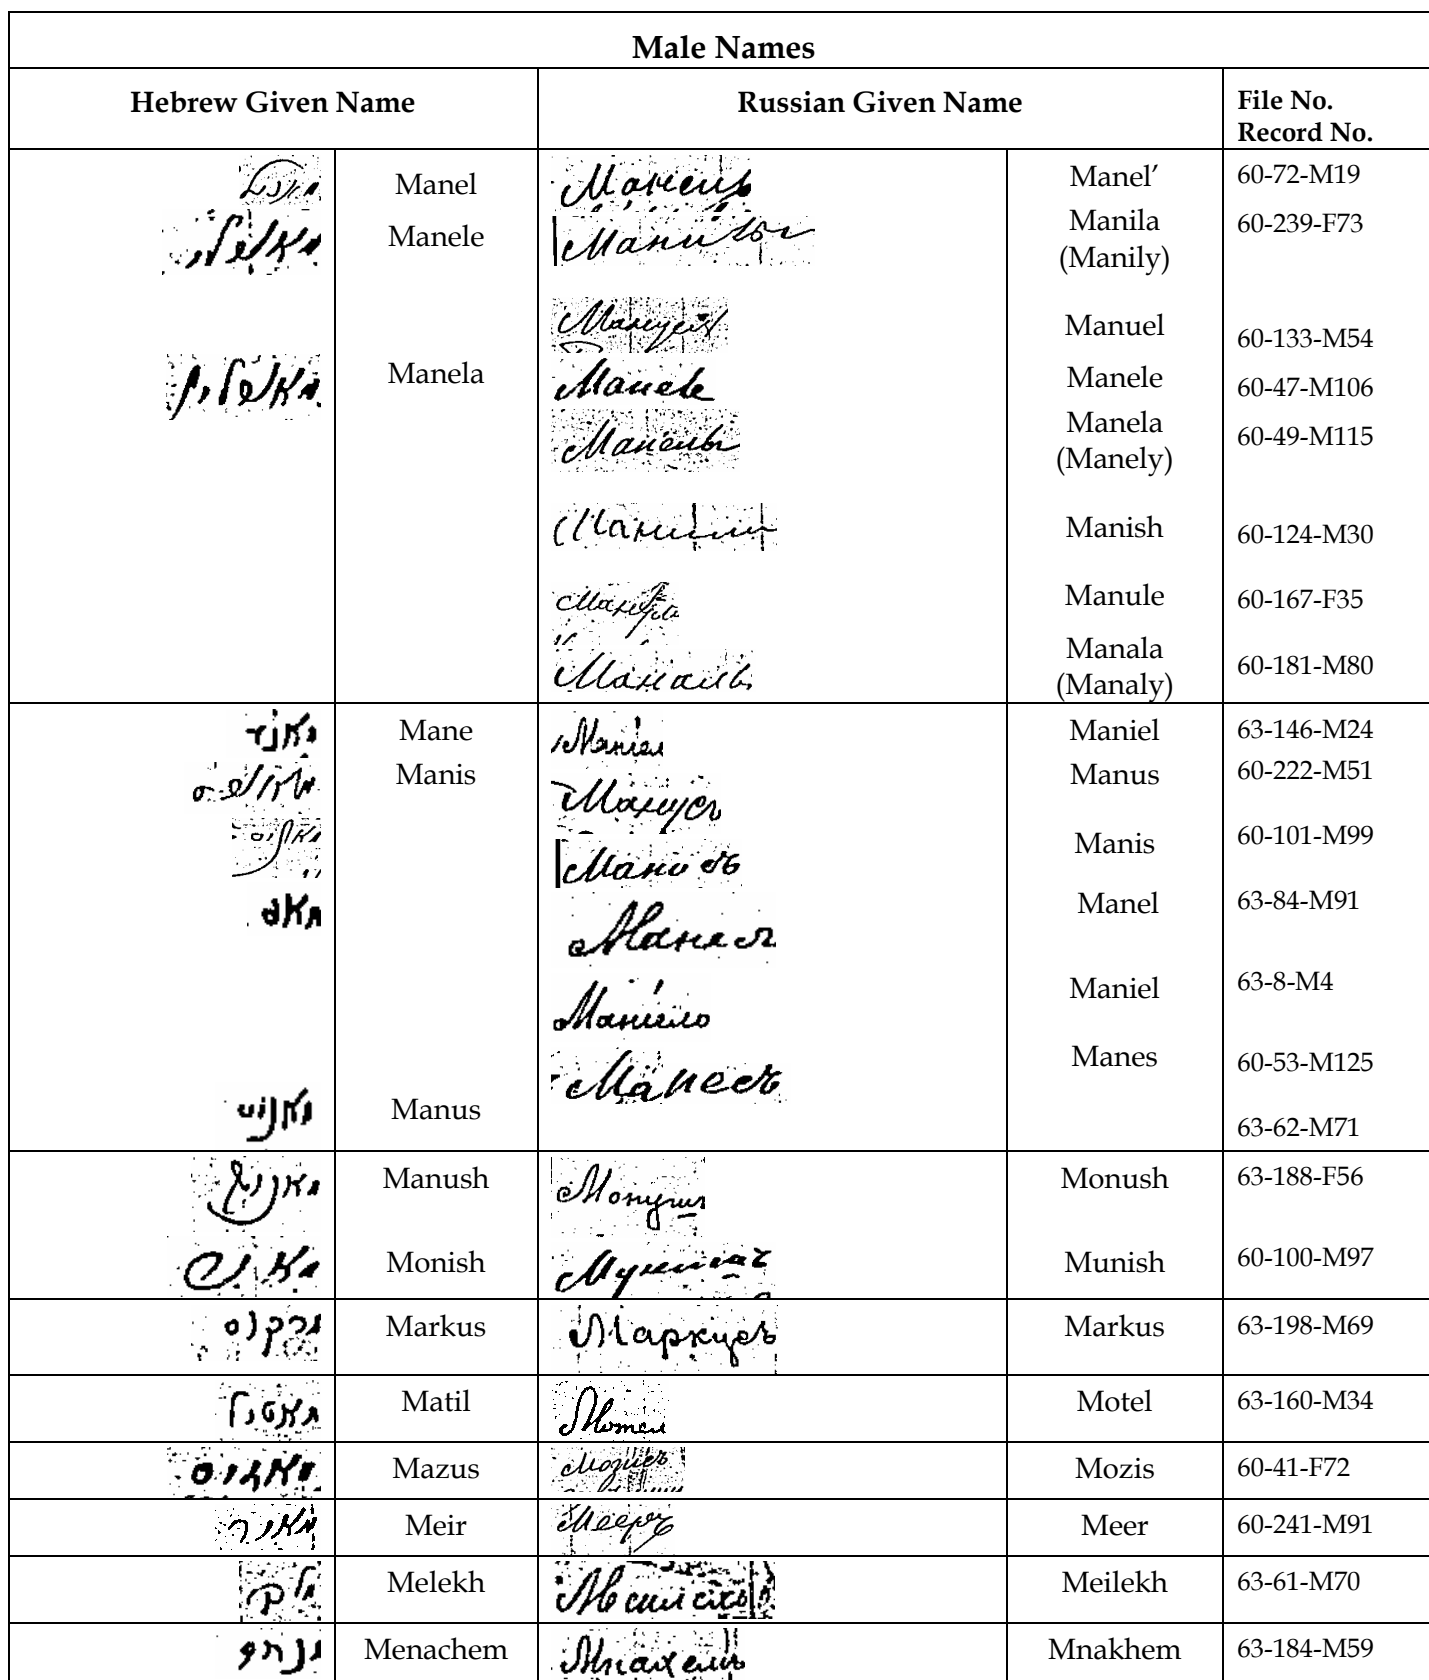 Male Names
Hebrew Given Name Russian Given Name File No. Record No.
Manel Манель Manel’ 60-72-M19
Manele Манилы Manila (Manily) 60-239-F73
Мануель Manuel 60-133-M54
Manela Манеле Manele 60-47-M106
Манелы Manela (Manely) 60-49-M115
Manish 60-124-M30
Manule 60-167-F35
Маналы Manala (Manaly) 60-181-M80
Mane Маніел Maniel 63-146-M24
Manis Манусъ Manus 60-222-M51
Манисъ Manis 60-101-M99
Manel 63-84-M91
Maniel 63-8-M4
Манесъ Manes 60-53-M125
מאנוס Manus 63-62-M71
Manush Монушъ Monush 63-188-F56
Monish Мунишъ Munish 60-100-M97
מרקוס Markus Маркусъ Markus 63-198-M69
מאטיל Matil Мотел Motel 63-160-M34
Mazus Мозисъ Mozis 60-41-F72
מאיר Meir Мееръ Meer 60-241-M91
מלך Melekh Meilekh 63-61-M70
מנחם Menachem Мнахемъ Mnakhem 63-184-M59